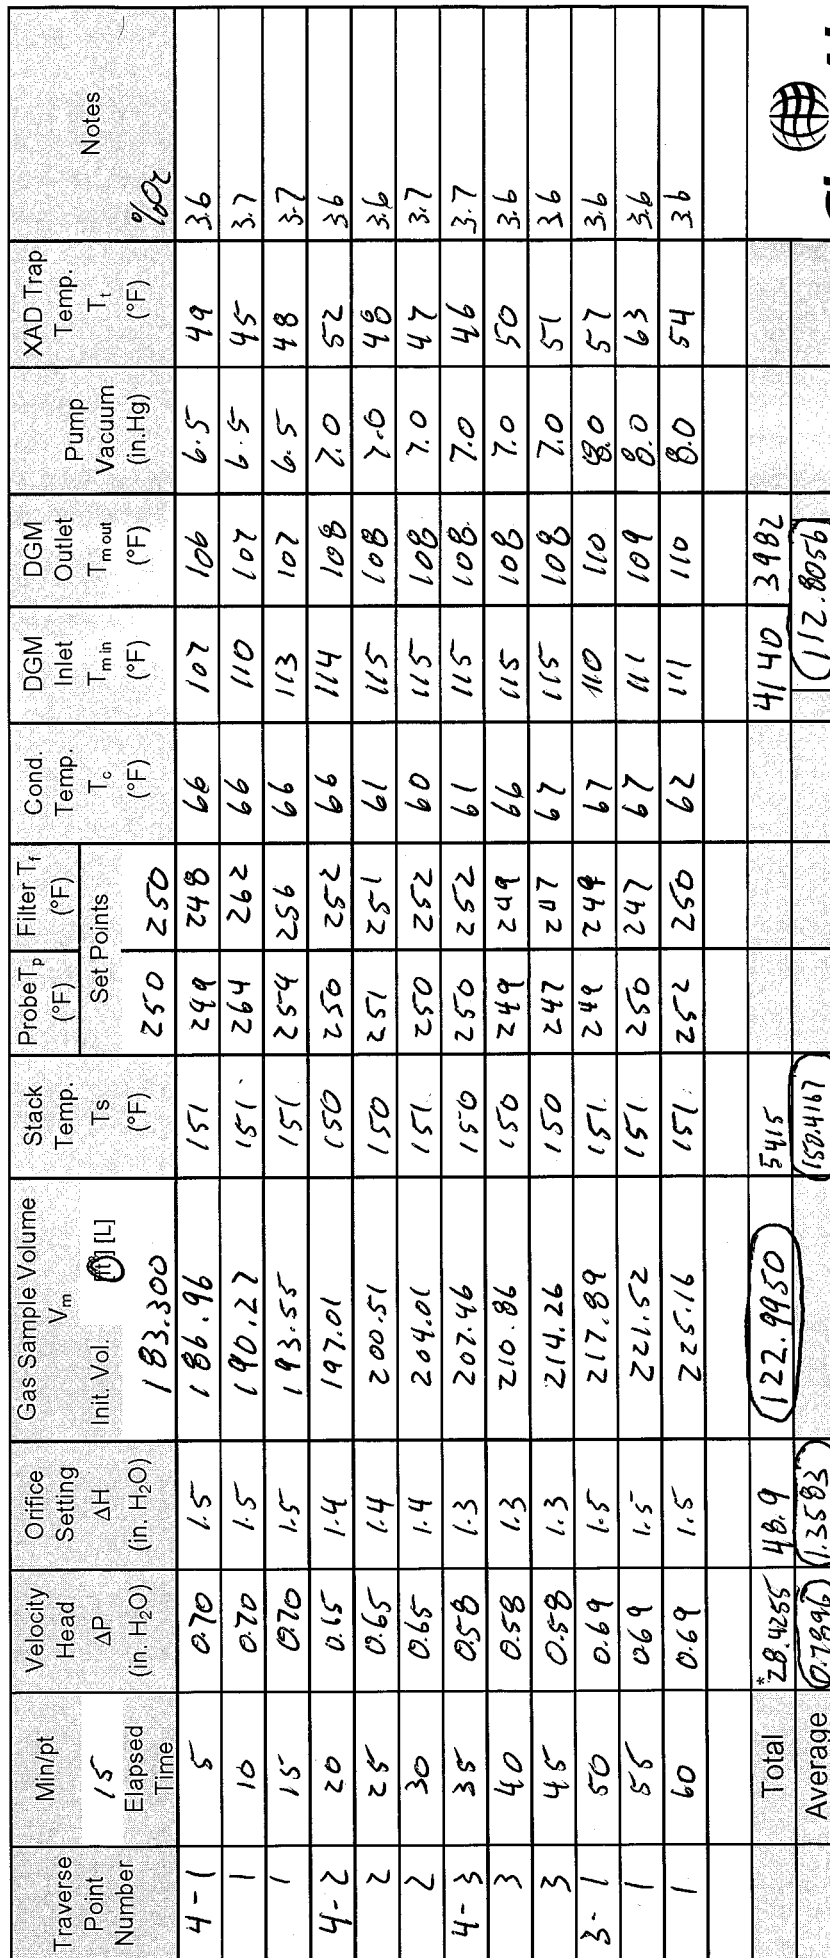 Traverse Point Number | Min/pt 15 Elapsed Time | Velocity Head ΔP (in. H₂O) | Orifice Setting ΔH (in. H₂O) | Gas Sample Volume Vm Init. Vol. [ft³] [L] 183.300 | Stack Temp. Ts (°F) | Probe Tp (°F) Set Points 250 | Filter Tf (°F) 250 | Cond. Temp. Tc (°F) | DGM Inlet Tm in (°F) | DGM Outlet Tm out (°F) | Pump Vacuum (in.Hg) | XAD Trap Temp. Tt (°F) | Notes %O2
4-1 | 5 | 0.70 | 1.5 | 186.96 | 151 | 249 | 248 | 66 | 107 | 106 | 6.5 | 49 | 3.6
1 | 10 | 0.70 | 1.5 | 190.27 | 151. | 264 | 262 | 66 | 110 | 107 | 6.5 | 45 | 3.7
1 | 15 | 0.70 | 1.5 | 193.55 | 151 | 254 | 256 | 66 | 113 | 107 | 6.5 | 48 | 3.7
4-2 | 20 | 0.15 | 1.4 | 197.01 | 150 | 250 | 252 | 66 | 114 | 108 | 7.0 | 52 | 3.6
2 | 25 | 0.65 | 1.4 | 200.51 | 150 | 251 | 251 | 61 | 115 | 108 | 7.0 | 48 | 3.6
2 | 30 | 0.65 | 1.4 | 204.01 | 151. | 250 | 252 | 60 | 115 | 108 | 7.0 | 47 | 3.7
4-3 | 35 | 0.58 | 1.3 | 207.46 | 150 | 250 | 252 | 61 | 115 | 108 | 7.0 | 46 | 3.7
3 | 40 | 0.58 | 1.3 | 210.86 | 150 | 249 | 249 | 66 | 115 | 108 | 7.0 | 50 | 3.6
3 | 45 | 0.58 | 1.3 | 214.26 | 150 | 247 | 247 | 67 | 115 | 108 | 7.0 | 51 | 3.6
3-1 | 50 | 0.69 | 1.5 | 217.89 | 151. | 249 | 249 | 67 | 110 | 110 | 8.0 | 57 | 3.6
1 | 55 | 0.69 | 1.5 | 221.52 | 151 | 250 | 247 | 67 | 111 | 109 | 8.0 | 63 | 3.6
1 | 60 | 0.69 | 1.5 | 225.16 | 151. | 252 | 250 | 62 | 111 | 110 | 8.0 | 54 | 3.6
Total | *28.4255 | 48.9 | 122.9950 | 5415 | 4140 | 3982
Average | 0.7896 | 1.3583 | 150.4167 | 112.8056